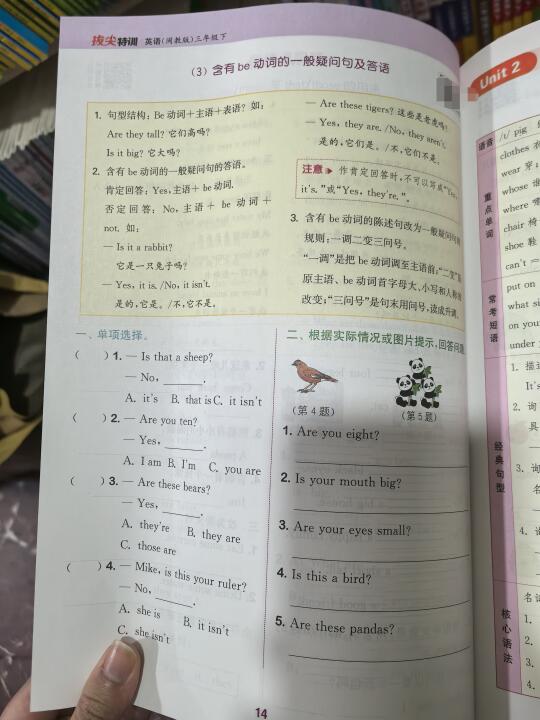 拔尖特训 英语(闽教版)三年级下
(3) 含有 be 动词的一般疑问句及答语
1. 句型结构: Be 动词+主语+表语? 如:
Are they tall? 它们高吗?
Is it big? 它大吗?
2. 含有 be 动词的一般疑问句的答语。
肯定回答: Yes, 主语+be 动词.
否定回答: No, 主语+be 动词+
not. 如:
— Is it a rabbit?
它是一只兔子吗?
— Yes, it is. /No, it isn't.
是的,它是。/不,它不是。
— Are these tigers? 这些是老虎吗?
— Yes, they are. /No, they aren't.
是的,它们是。/不,它们不是。
注意 作肯定回答时,不可以写成“Yes,
it's. ”或“Yes, they're. ”。
3. 含有 be 动词的陈述句改为一般疑问句的
规则:一调二变三问号。
“一调”是把 be 动词调至主语前;“二变”是
原主语、be 动词首字母大、小写和人称的
改变;“三问号”是句末用问号,读成升调。
一、单项选择。
( ) 1. — Is that a sheep?
— No, ______.
A. it's B. that is C. it isn't
( ) 2. — Are you ten?
— Yes, ______.
A. I am B. I'm C. you are
( ) 3. — Are these bears?
— Yes, ______.
A. they're B. they are
C. those are
( ) 4. — Mike, is this your ruler?
— No, ______.
A. she is B. it isn't
C. she isn't
二、根据实际情况或图片提示,回答问题
(第 4 题) (第 5 题)
1. Are you eight?
2. Is your mouth big?
3. Are your eyes small?
4. Is this a bird?
5. Are these pandas?
14
Unit 2
语音 /t/ pig
重点单词
clothes
wear 穿;
whose
where
chair 椅
shoe 鞋
can't =
常考短语
put on
what si
on you
under
经典句型
1. 描述
It's
2. 询
具
3. 询
4. 询
核心语法
名词
1.
2.
3.
4.